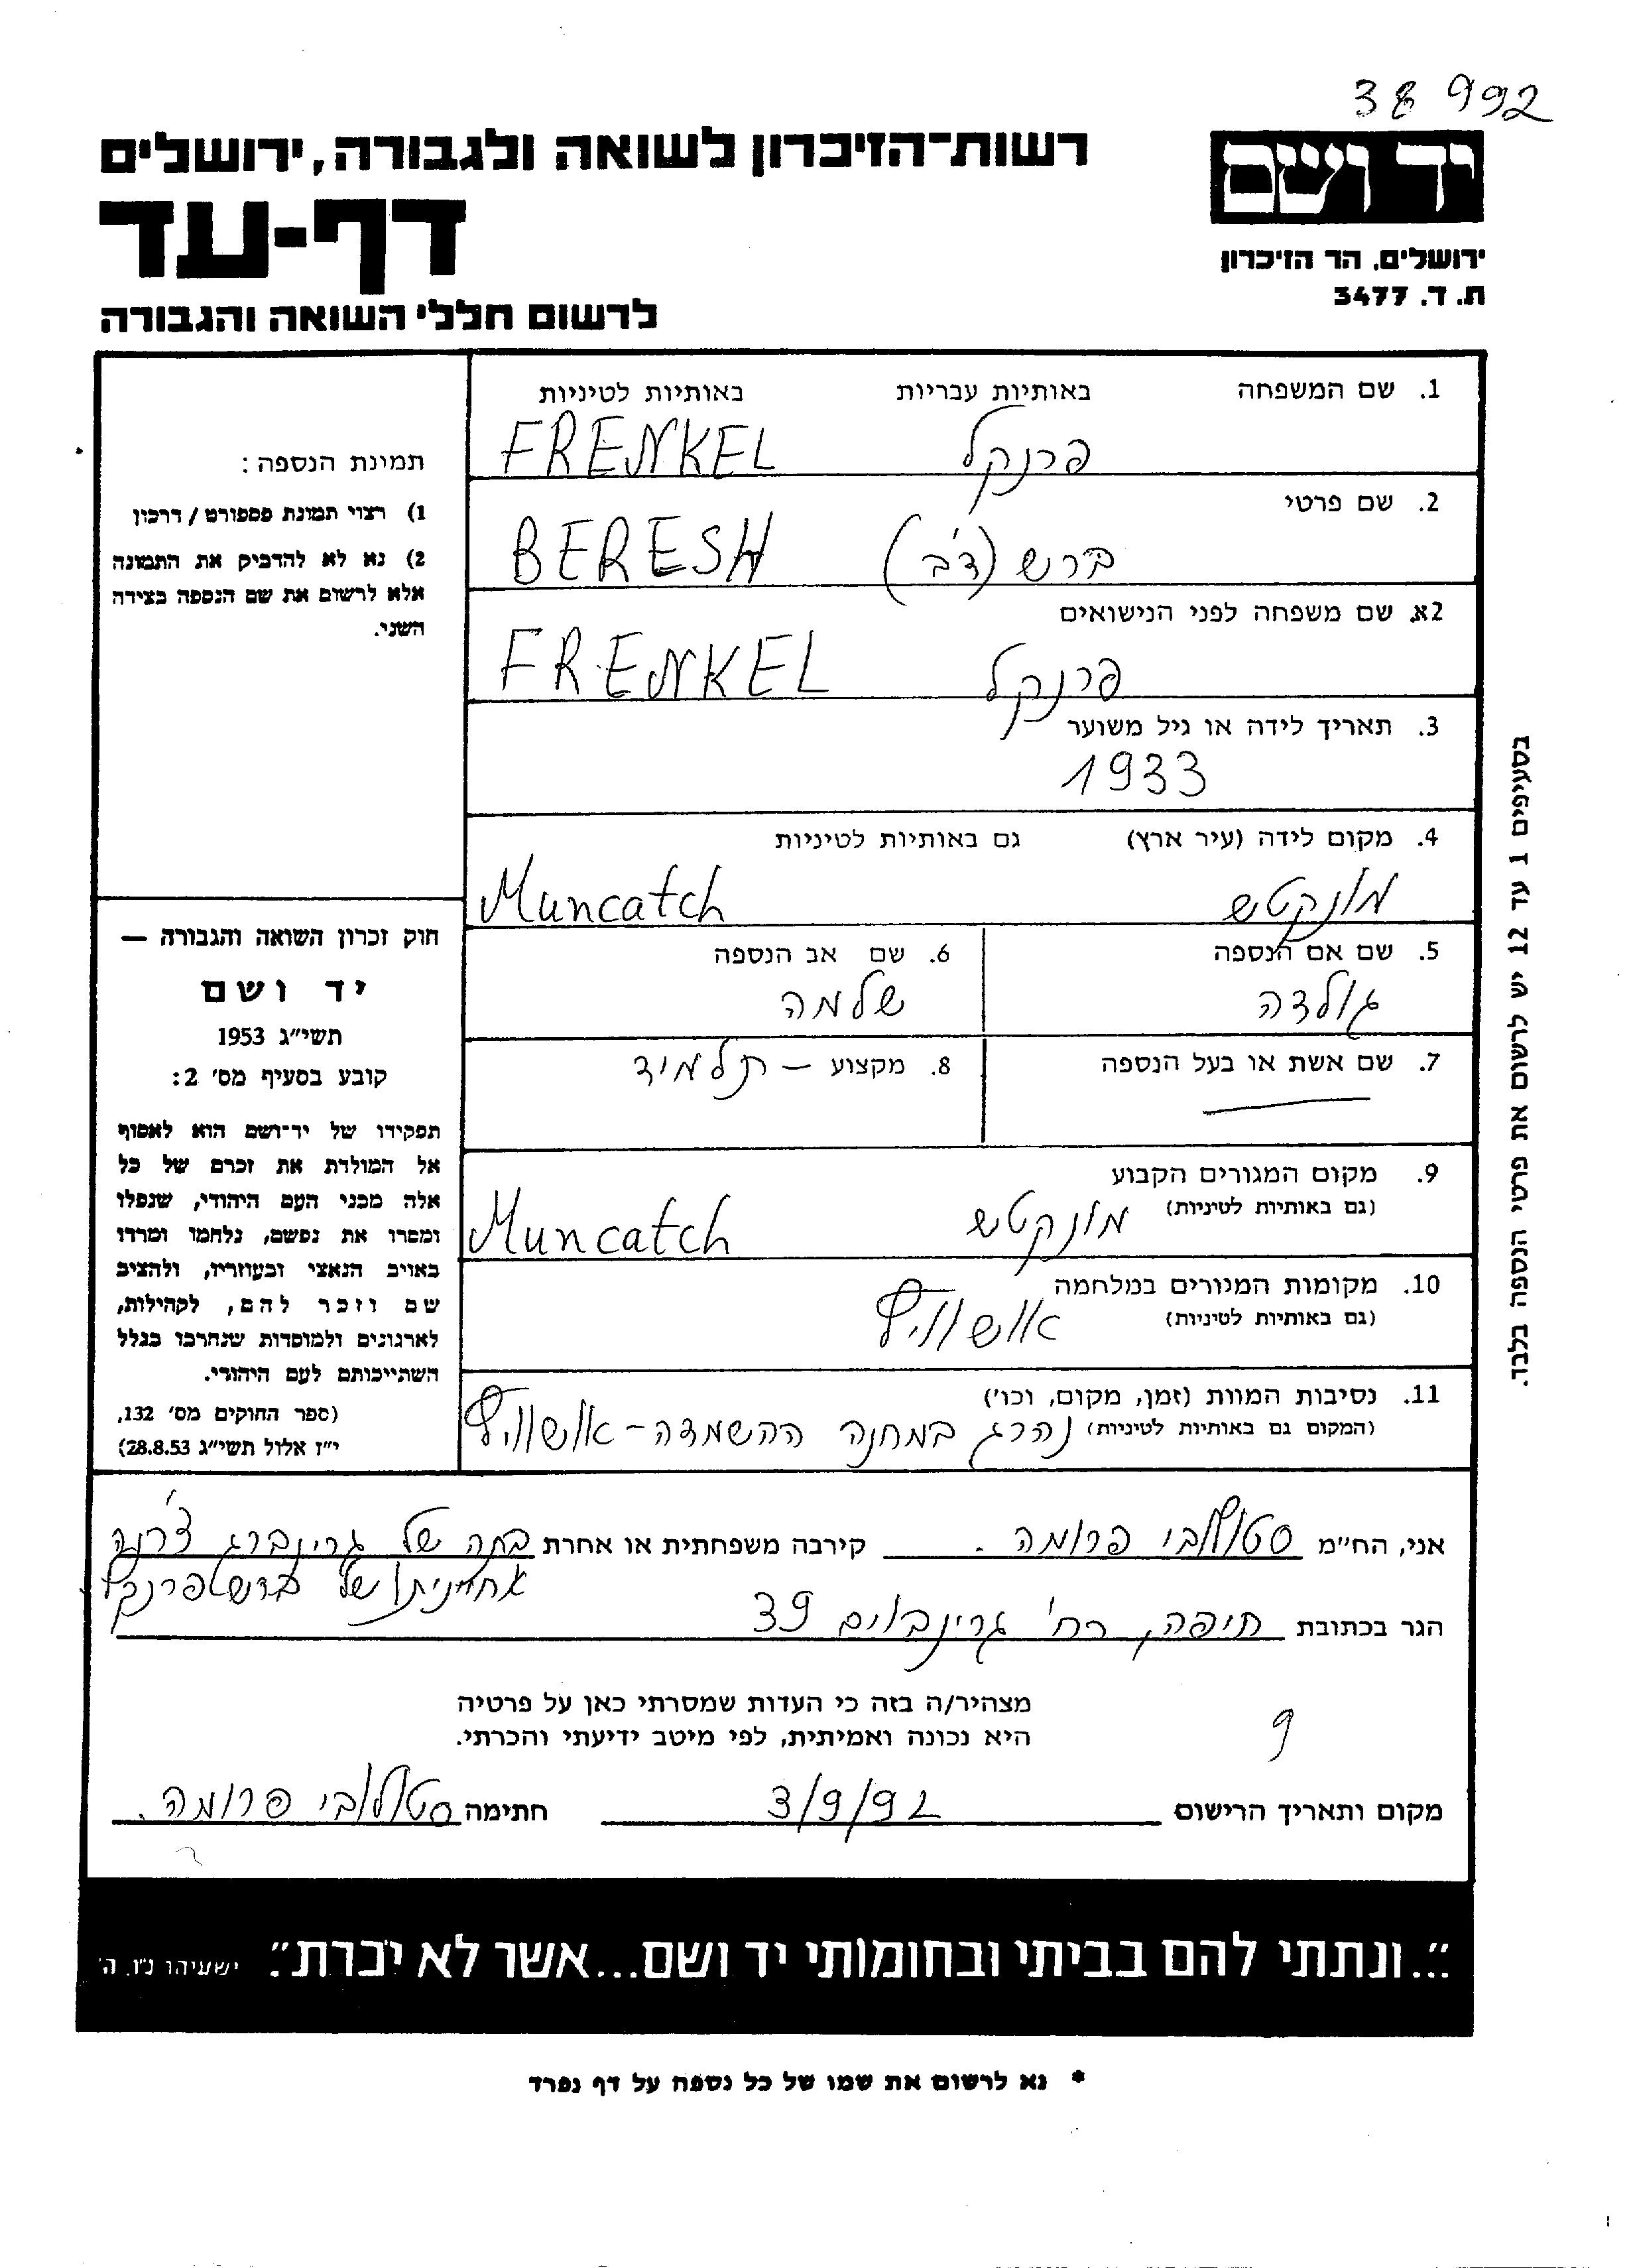 38992
רשות־הזיכרון לשואה ולגבורה, ירושלים
דף-עד
לרשום חללי השואה והגבורה
יד ושם
ירושלים. הר הזיכרון
ת. ד. 3477
1. שם המשפחה באותיות עבריות באותיות לטיניות
פרנקל FRENKEL
2. שם פרטי
ברש (דב) BERESH
2א. שם משפחה לפני הנישואים
פרנקל FRENKEL
3. תאריך לידה או גיל משוער
1933
4. מקום לידה (עיר ארץ) גם באותיות לטיניות
מונקטש Muncatch
5. שם אם הנספה 6. שם אב הנספה
גולדה שלמה
7. שם אשת או בעל הנספה 8. מקצוע – תלמיד
9. מקום המגורים הקבוע
(גם באותיות לטיניות) מונקטש Muncatch
10. מקומות המגורים במלחמה
(גם באותיות לטיניות) אושוויץ
11. נסיבות המוות (זמן, מקום, וכו')
(המקום גם באותיות לטיניות) נהרג במחנה ההשמדה - אושוויץ
תמונת הנספה:
1) רצוי תמונת פספורט / דרכון
2) נא לא להדביק את התמונה
אלא לרשום את שם הנספה בצידה
השני.
חוק זכרון השואה והגבורה —
יד ושם
תשי"ג 1953
קובע בסעיף מס' 2:
תפקידו של יד־ושם הוא לאסוף
אל המולדת את זכרם של כל
אלה מבני העם היהודי, שנפלו
ומסרו את נפשם, נלחמו ומרדו
באויב הנאצי ובעוזריו, ולהציב
שם וזכר להם, לקהילות,
לארגונים ולמוסדות שנחרבו בגלל
השתייכותם לעם היהודי.
(ספר החוקים מס' 132,
י"ז אלול תשי"ג 28.8.53)
בסעיפים 1 עד 12 יש לרשום את פרטי הנספה בלבד.
אני, החי"מ סטולובי פרומה. קירבה משפחתית או אחרת בתה של גרינברג צ'רנה
אחיינית של ברש פרנקל
הגר בכתובת חיפה, רח' גרינבוים 39
מצהיר/ה בזה כי העדות שמסרתי כאן על פרטיה
היא נכונה ואמיתית, לפי מיטב ידיעתי והכרתי.
9
מקום ותאריך הרישום 3/9/92 חתימה סטולובי פרומה.
"...ונתתי להם בביתי ובחומותי יד ושם...אשר לא יכרת". ישעיהו נ"ו. ה'
* נא לרשום את שמו של כל נספה על דף נפרד